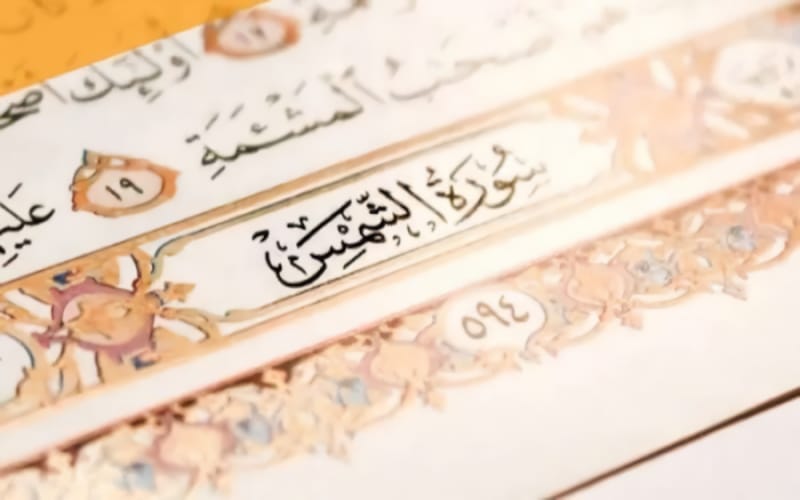 أُوْلَٰٓئِكَ أَصْحَٰ
أَصْحَٰبُ ٱلْمَشْـَٔمَةِ ١٩ عَلَيْهِ
سُورَةُ الشَّمْسِ
٥٩٤